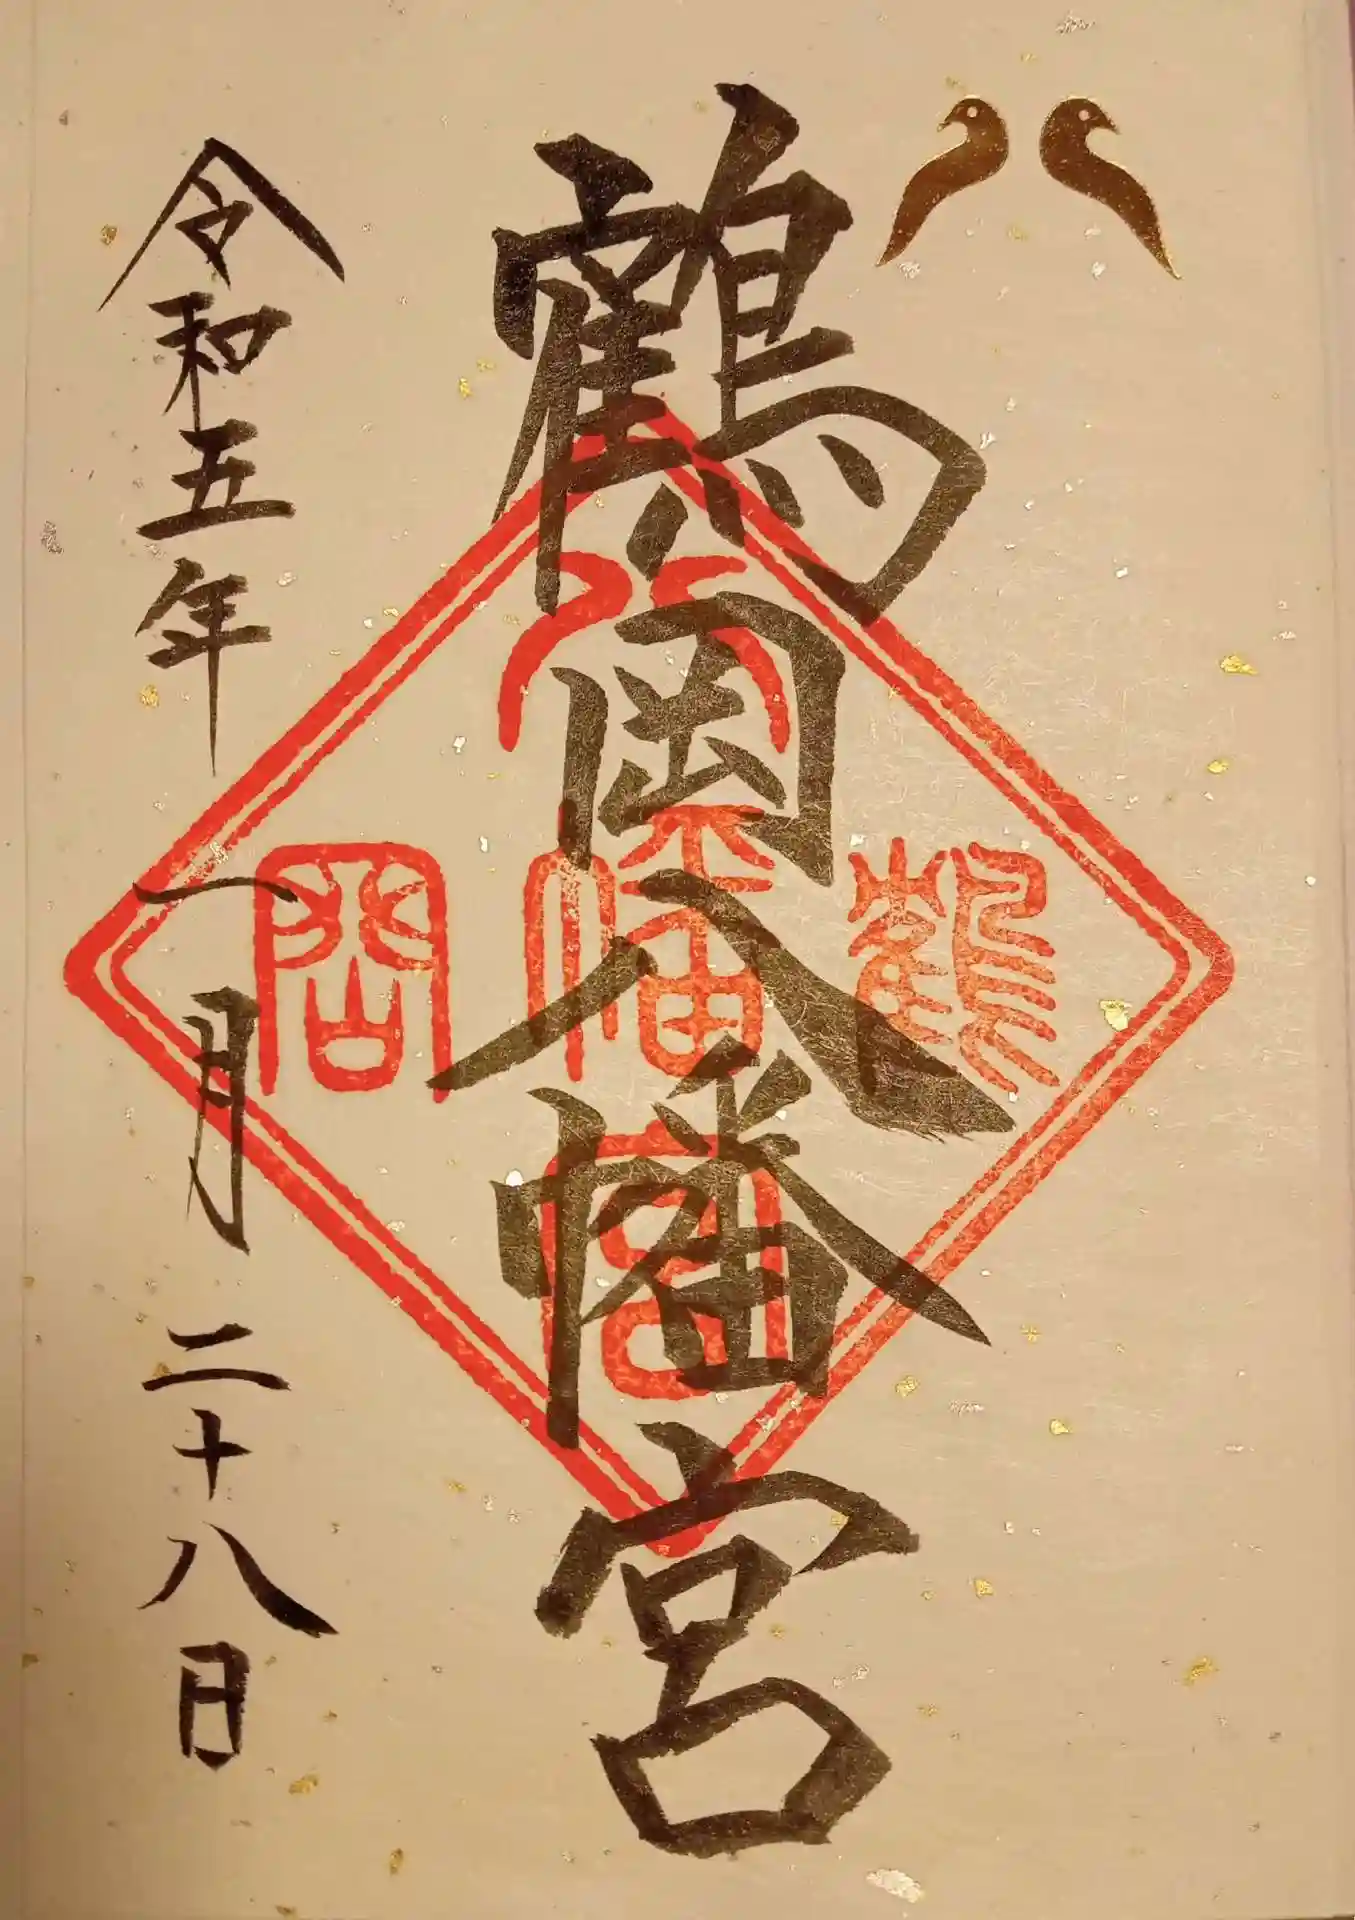 鶴岡八幡宮
鶴
八幡宮
岡
令和五年
一月二十八日